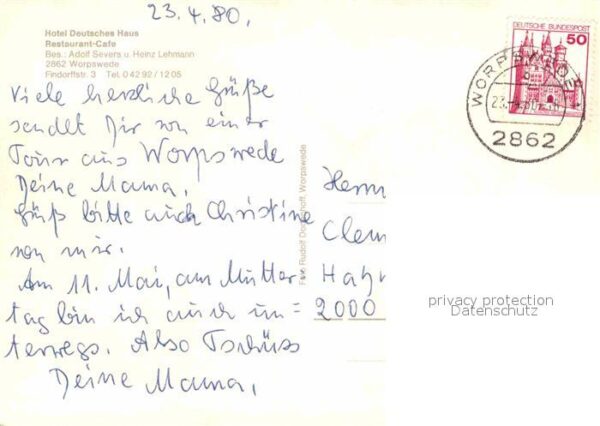 23.4.80.
Hotel Deutsches Haus
Restaurant-Cafe
Bes.: Adolf Severs u. Heinz Lehmann
2862 Worpswede
Findorffstr. 3 Tel. 0 42 92 / 12 05
Viele herzliche Grüße
sendet Dir von einer
Tour aus Worpswede
Deine Mama,
Grüß bitte auch Christine
von mir.
Am 11. Mai, am Mutter-
tag bin ich auch un=
terwegs. Also Tschüss
Deine Mama,
Foto Rudolf Dodenhoff, Worpswede
DEUTSCHE BUNDESPOST
50
WORPSWEDE
2862
Herrn
Clem
2000
privacy protection
Datenschutz